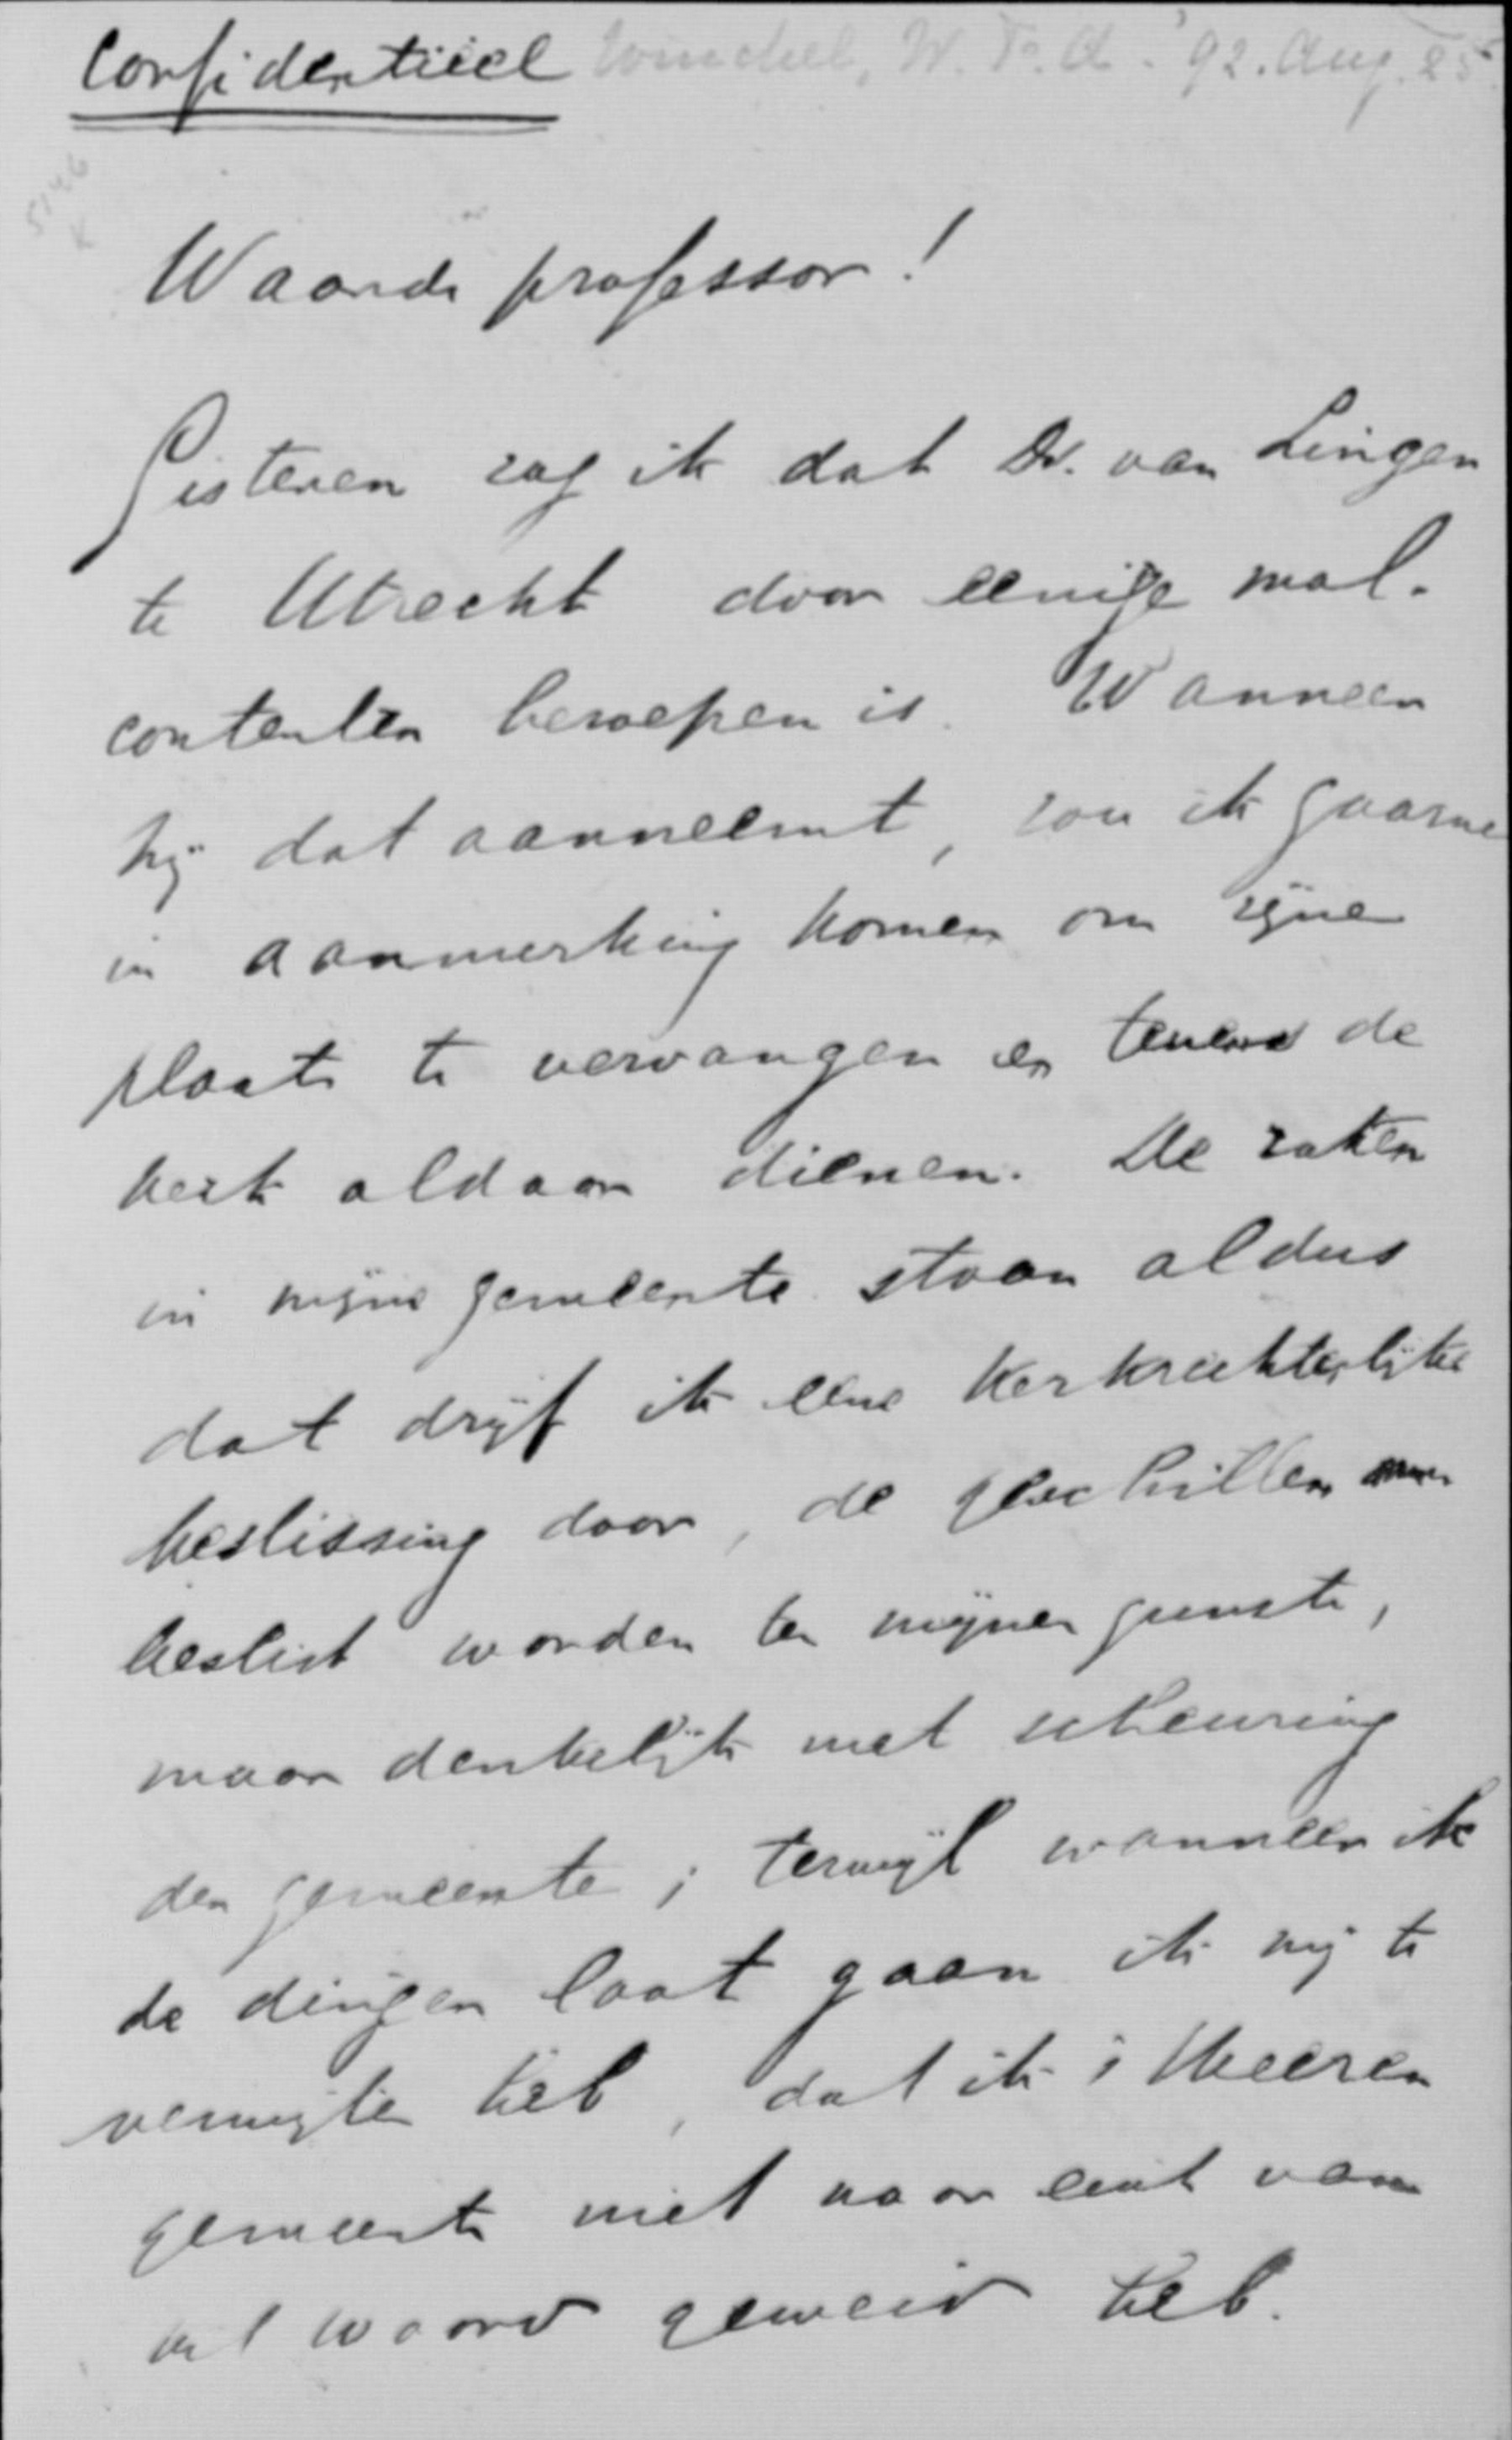 Confidentiëel Winckel, W.F.A. '92. Aug. 25
5146
K
Waarde professor!
Gisteren zag ik dat Dr. van Lingen
te Utrecht door eenige mal-
contenten beroepen is. Wanneer
hij dat aanneemt, zou ik gaarne
in aanmerking komen om zijne
plaats te vervangen en tevens de
kerk aldaar dienen. De zaken
in mijne gemeente staan aldus
dat drijf ik eene kerkrechterlijke
beslissing door, de geschillen
beslist worden ten mijnen gunste,
maar denkelijk met scheuring
der gemeente; terwijl wanneer ik
de dingen laat gaan ik mij te
verwijten heb, dat ik 's Heeren
gemeente niet naar eisch van
het woord geweid heb.